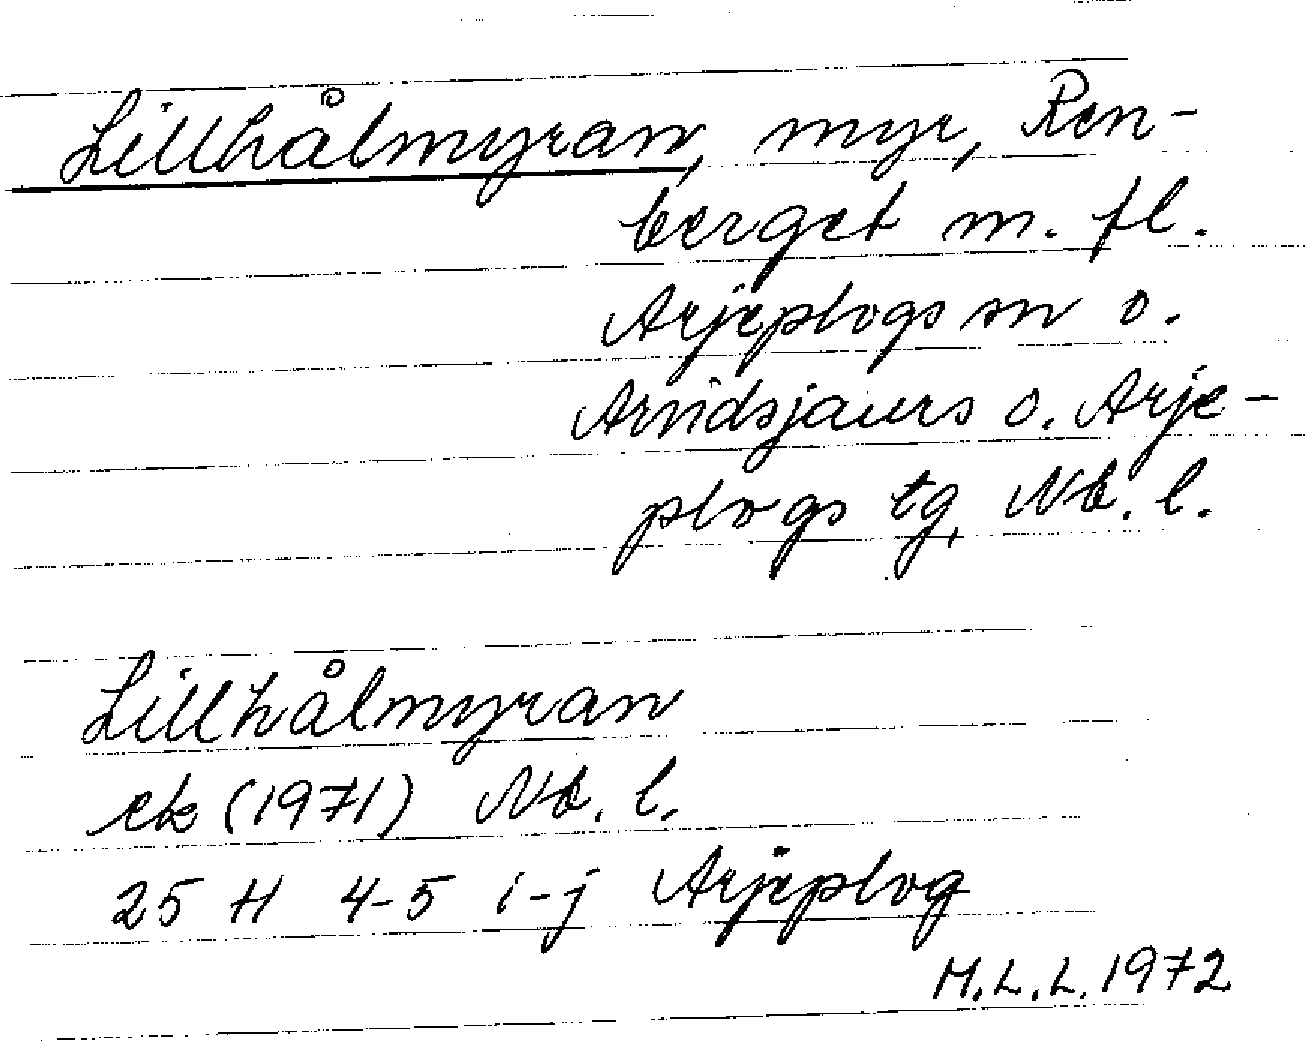 Lillhålmyran, myr, Ren-
berget m. fl.
Arjeplogs sn o.
Arvidsjaurs o. Arje-
plogs tg, Nb. l.
Lillhålmyran
ek (1971) Nb. l.
25 H 4-5 i-j Arjeplog
M.L.L. 1972